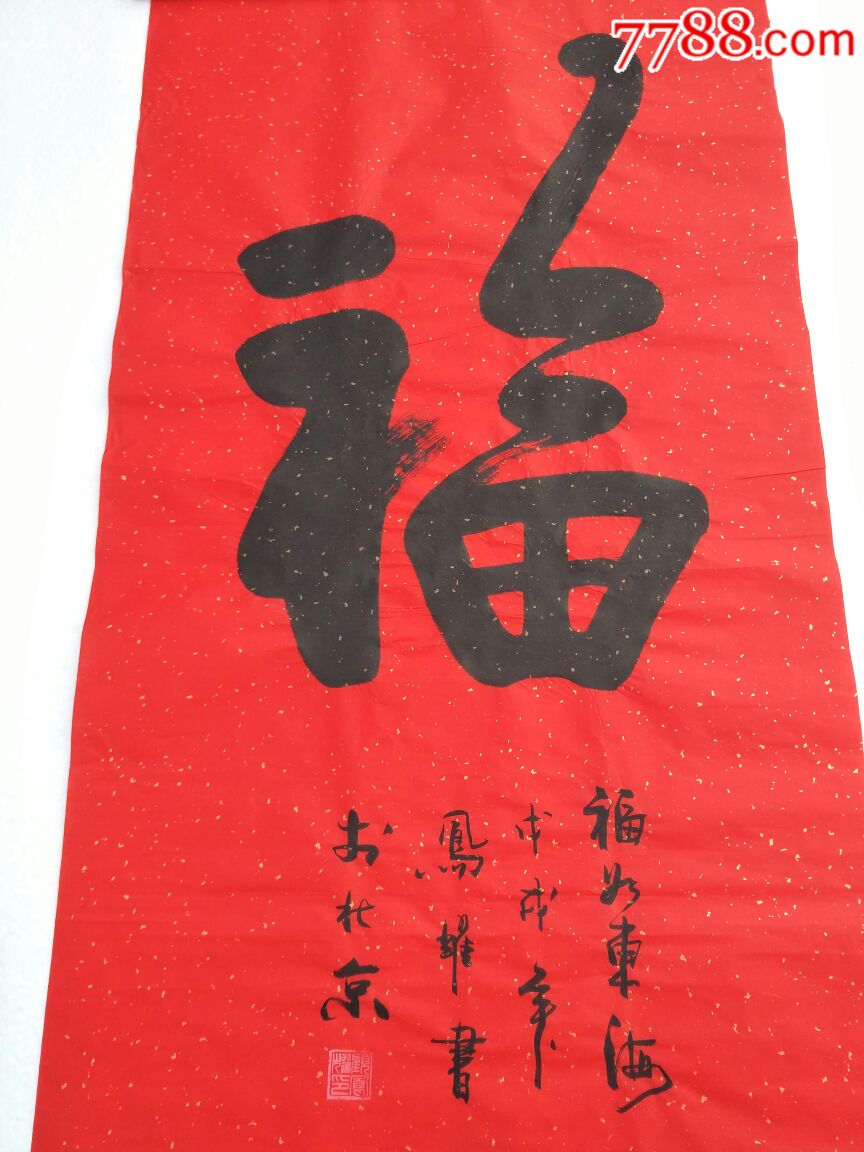 7788.com
福
福如东海
戊戌年
鳳耀書
於北京